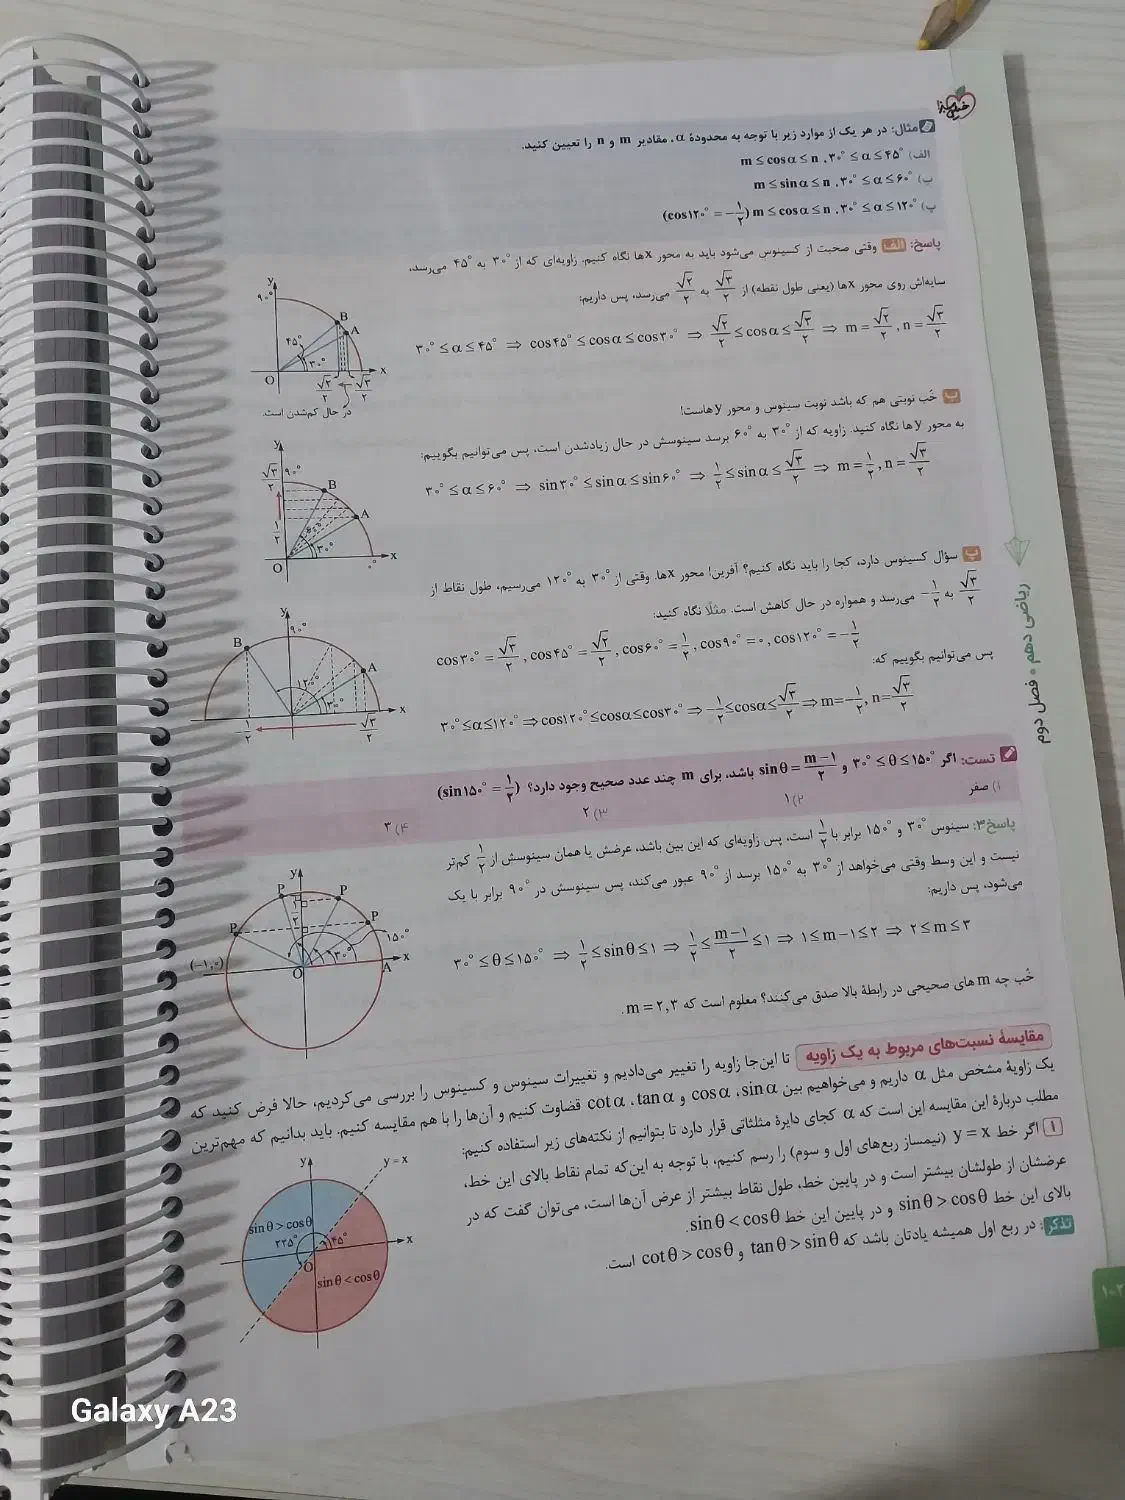 خیلی سبز
مثال: در هر یک از موارد زیر با توجه به محدودهٔ α، مقادیر m و n را تعیین کنید.
الف) m ≤ cosα ≤ n ،۳۰° ≤ α ≤ ۴۵°
ب) m ≤ sinα ≤ n ،۳۰° ≤ α ≤ ۶۰°
پ) (cos۱۲۰° = -۱/۲) m ≤ cosα ≤ n ،۳۰° ≤ α ≤ ۱۲۰°
پاسخ: الف وقتی صحبت از کسینوس می‌شود باید به محور xها نگاه کنیم. زاویه‌ای که از ۳۰° به ۴۵° می‌رسد،
سایه‌اش روی محور xها (یعنی طول نقطه) از √۳/۲ به √۲/۲ می‌رسد، پس داریم:
۳۰° ≤ α ≤ ۴۵° ⇒ cos۴۵° ≤ cosα ≤ cos۳۰° ⇒ √۲/۲ ≤ cosα ≤ √۳/۲ ⇒ m = √۲/۲ , n = √۳/۲
y
۹۰°
B
A
۴۵°
۳۰°
O
x
√۲/۲
√۳/۲
در حال کم‌شدن است.
ب خُب نوبتی هم که باشد نوبت سینوس و محور yهاست!
به محور yها نگاه کنید. زاویه که از ۳۰° به ۶۰° برسد سینوسش در حال زیادشدن است، پس می‌توانیم بگوییم:
۳۰° ≤ α ≤ ۶۰° ⇒ sin۳۰° ≤ sinα ≤ sin۶۰° ⇒ ۱/۲ ≤ sinα ≤ √۳/۲ ⇒ m = ۱/۲ , n = √۳/۲
y
√۳/۲
۹۰°
B
A
۱/۲
۶۰°
۳۰°
O
x
۰°
پ سؤال کسینوس دارد، کجا را باید نگاه کنیم؟ آفرین! محور xها. وقتی از ۳۰° به ۱۲۰° می‌رسیم، طول نقاط از
√۳/۲ به -۱/۲ می‌رسد و همواره در حال کاهش است. مثلاً نگاه کنید:
cos۳۰° = √۳/۲ , cos۴۵° = √۲/۲ , cos۶۰° = ۱/۲ , cos۹۰° = ۰ , cos۱۲۰° = -۱/۲
پس می‌توانیم بگوییم که:
۳۰° ≤ α ≤ ۱۲۰° ⇒ cos۱۲۰° ≤ cosα ≤ cos۳۰° ⇒ -۱/۲ ≤ cosα ≤ √۳/۲ ⇒ m = -۱/۲ , n = √۳/۲
y
۹۰°
B
A
۱۲۰°
۳۰°
x
-۱/۲
√۳/۲
ریاضی دهم • فصل دوم
تست: اگر ۳۰° ≤ θ ≤ ۱۵۰° و sinθ = (m-۱)/۲ باشد، برای m چند عدد صحیح وجود دارد؟ (sin۱۵۰° = ۱/۲)
۱) صفر
۲) ۱
۳) ۲
۴) ۳
پاسخ ۳: سینوس ۳۰° و ۱۵۰° برابر با ۱/۲ است، پس زاویه‌ای که این بین باشد، عرضش یا همان سینوسش از ۱/۲ کم‌تر
نیست و این وسط وقتی می‌خواهد از ۳۰° به ۱۵۰° برسد از ۹۰° عبور می‌کند، پس سینوسش در ۹۰° برابر با یک
می‌شود، پس داریم:
۳۰° ≤ θ ≤ ۱۵۰° ⇒ ۱/۲ ≤ sinθ ≤ ۱ ⇒ ۱/۲ ≤ (m-۱)/۲ ≤ ۱ ⇒ ۱ ≤ m-۱ ≤ ۲ ⇒ ۲ ≤ m ≤ ۳
خُب چه mهای صحیحی در رابطهٔ بالا صدق می‌کنند؟ معلوم است که m = ۲, ۳.
y
P
P
P
P
۱/۲
۱۵۰°
۳۰°
(-۱,۰)
O
A
x
مقایسهٔ نسبت‌های مربوط به یک زاویه تا این‌جا زاویه را تغییر می‌دادیم و تغییرات سینوس و کسینوس را بررسی می‌کردیم، حالا فرض کنید که
یک زاویهٔ مشخص مثل α داریم و می‌خواهیم بین sinα، cosα و tanα، cotα قضاوت کنیم و آن‌ها را با هم مقایسه کنیم. باید بدانیم که مهم‌ترین
مطلب دربارهٔ این مقایسه این است که α کجای دایرهٔ مثلثاتی قرار دارد تا بتوانیم از نکته‌های زیر استفاده کنیم:
۱ اگر خط y = x (نیمساز ربع‌های اول و سوم) را رسم کنیم، با توجه به این‌که تمام نقاط بالای این خط،
عرضشان از طولشان بیشتر است و در پایین خط، طول نقاط بیشتر از عرض آن‌ها است، می‌توان گفت که در
بالای این خط sinθ > cosθ و در پایین این خط sinθ < cosθ.
تذکر: در ربع اول همیشه یادتان باشد که tanθ > sinθ و cotθ > cosθ است.
y
y = x
sinθ > cosθ
۲۲۵°
۴۵°
x
O
sinθ < cosθ
۱۰۲
Galaxy A23